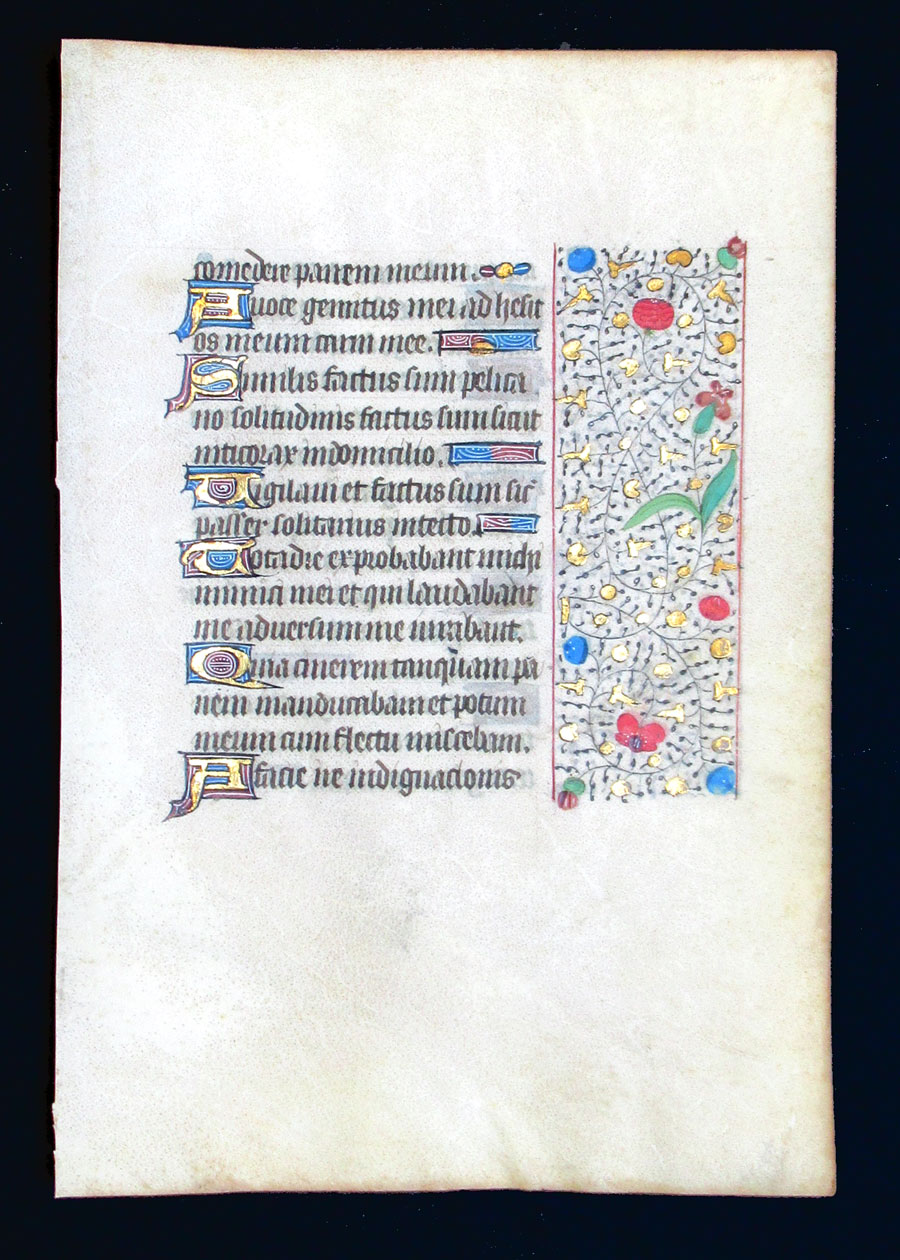 comedere panem meum.
A uoce gemitus mei adhesit
os meum carni mee.
Similis factus sum pelica
no solitudinis factus sum sicut
nicticorax in domicilio.
Vigilaui et factus sum sic̄
passer solitarius in tecto.
Tota die exprobabant michi
inimici mei et qui laudabant
me aduersum me iurabant.
Quia cinerem tanquam pa
nem manducabam et potum
meum cum fletu miscebam.
A facie ire indignacionis